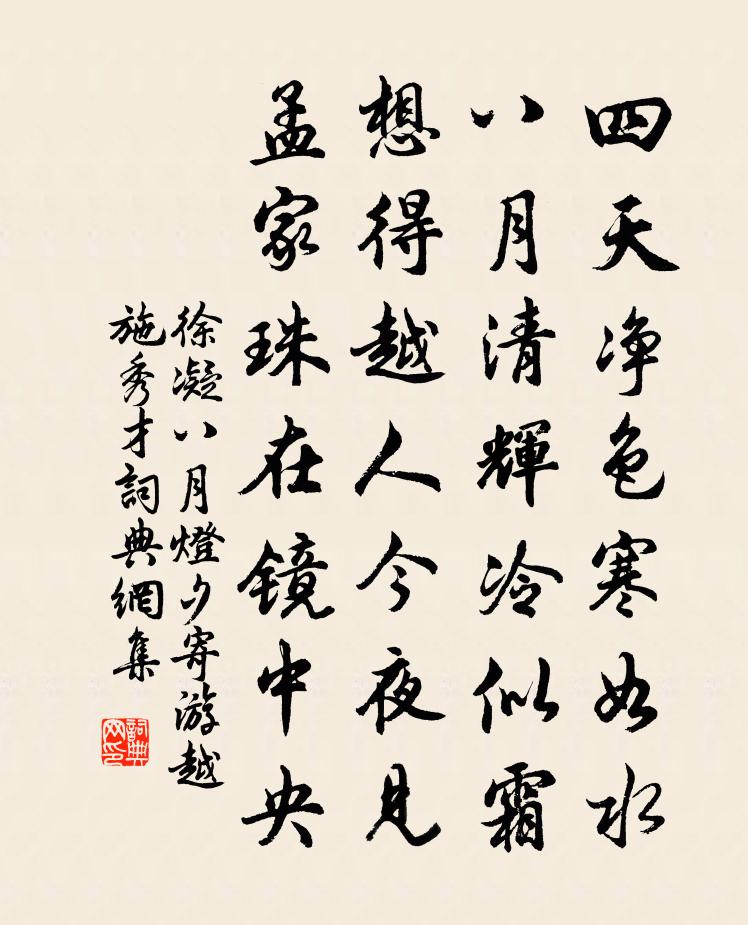 四天净色寒如水
八月清輝冷似霜
想得越人今夜見
孟家珠在镜中央
徐凝八月燈夕寄游越
施秀才詞典網集
詞典
网印